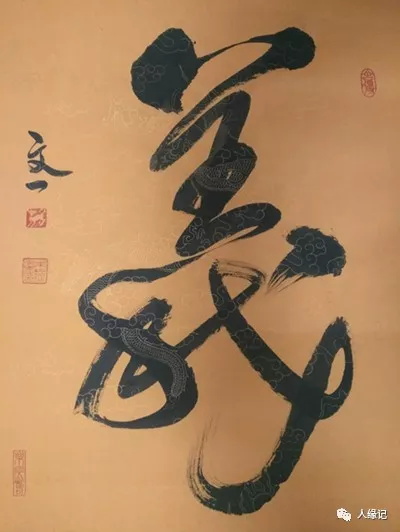 義
文一
人缘记